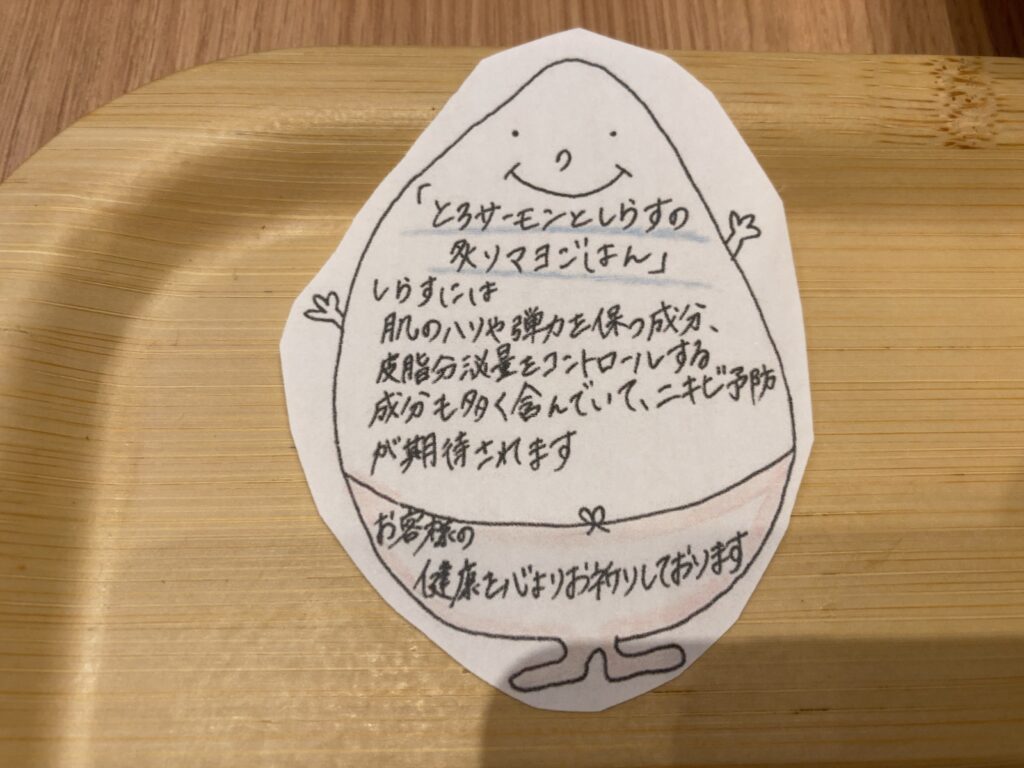 「とろサーモンとしらすの
炙りマヨごはん」
しらすには
肌のハリや弾力を保つ成分、
皮脂分泌量をコントロールする
成分も多く含んでいて、ニキビ予防
が期待されます
お客様の
健康を心よりお祈りしております